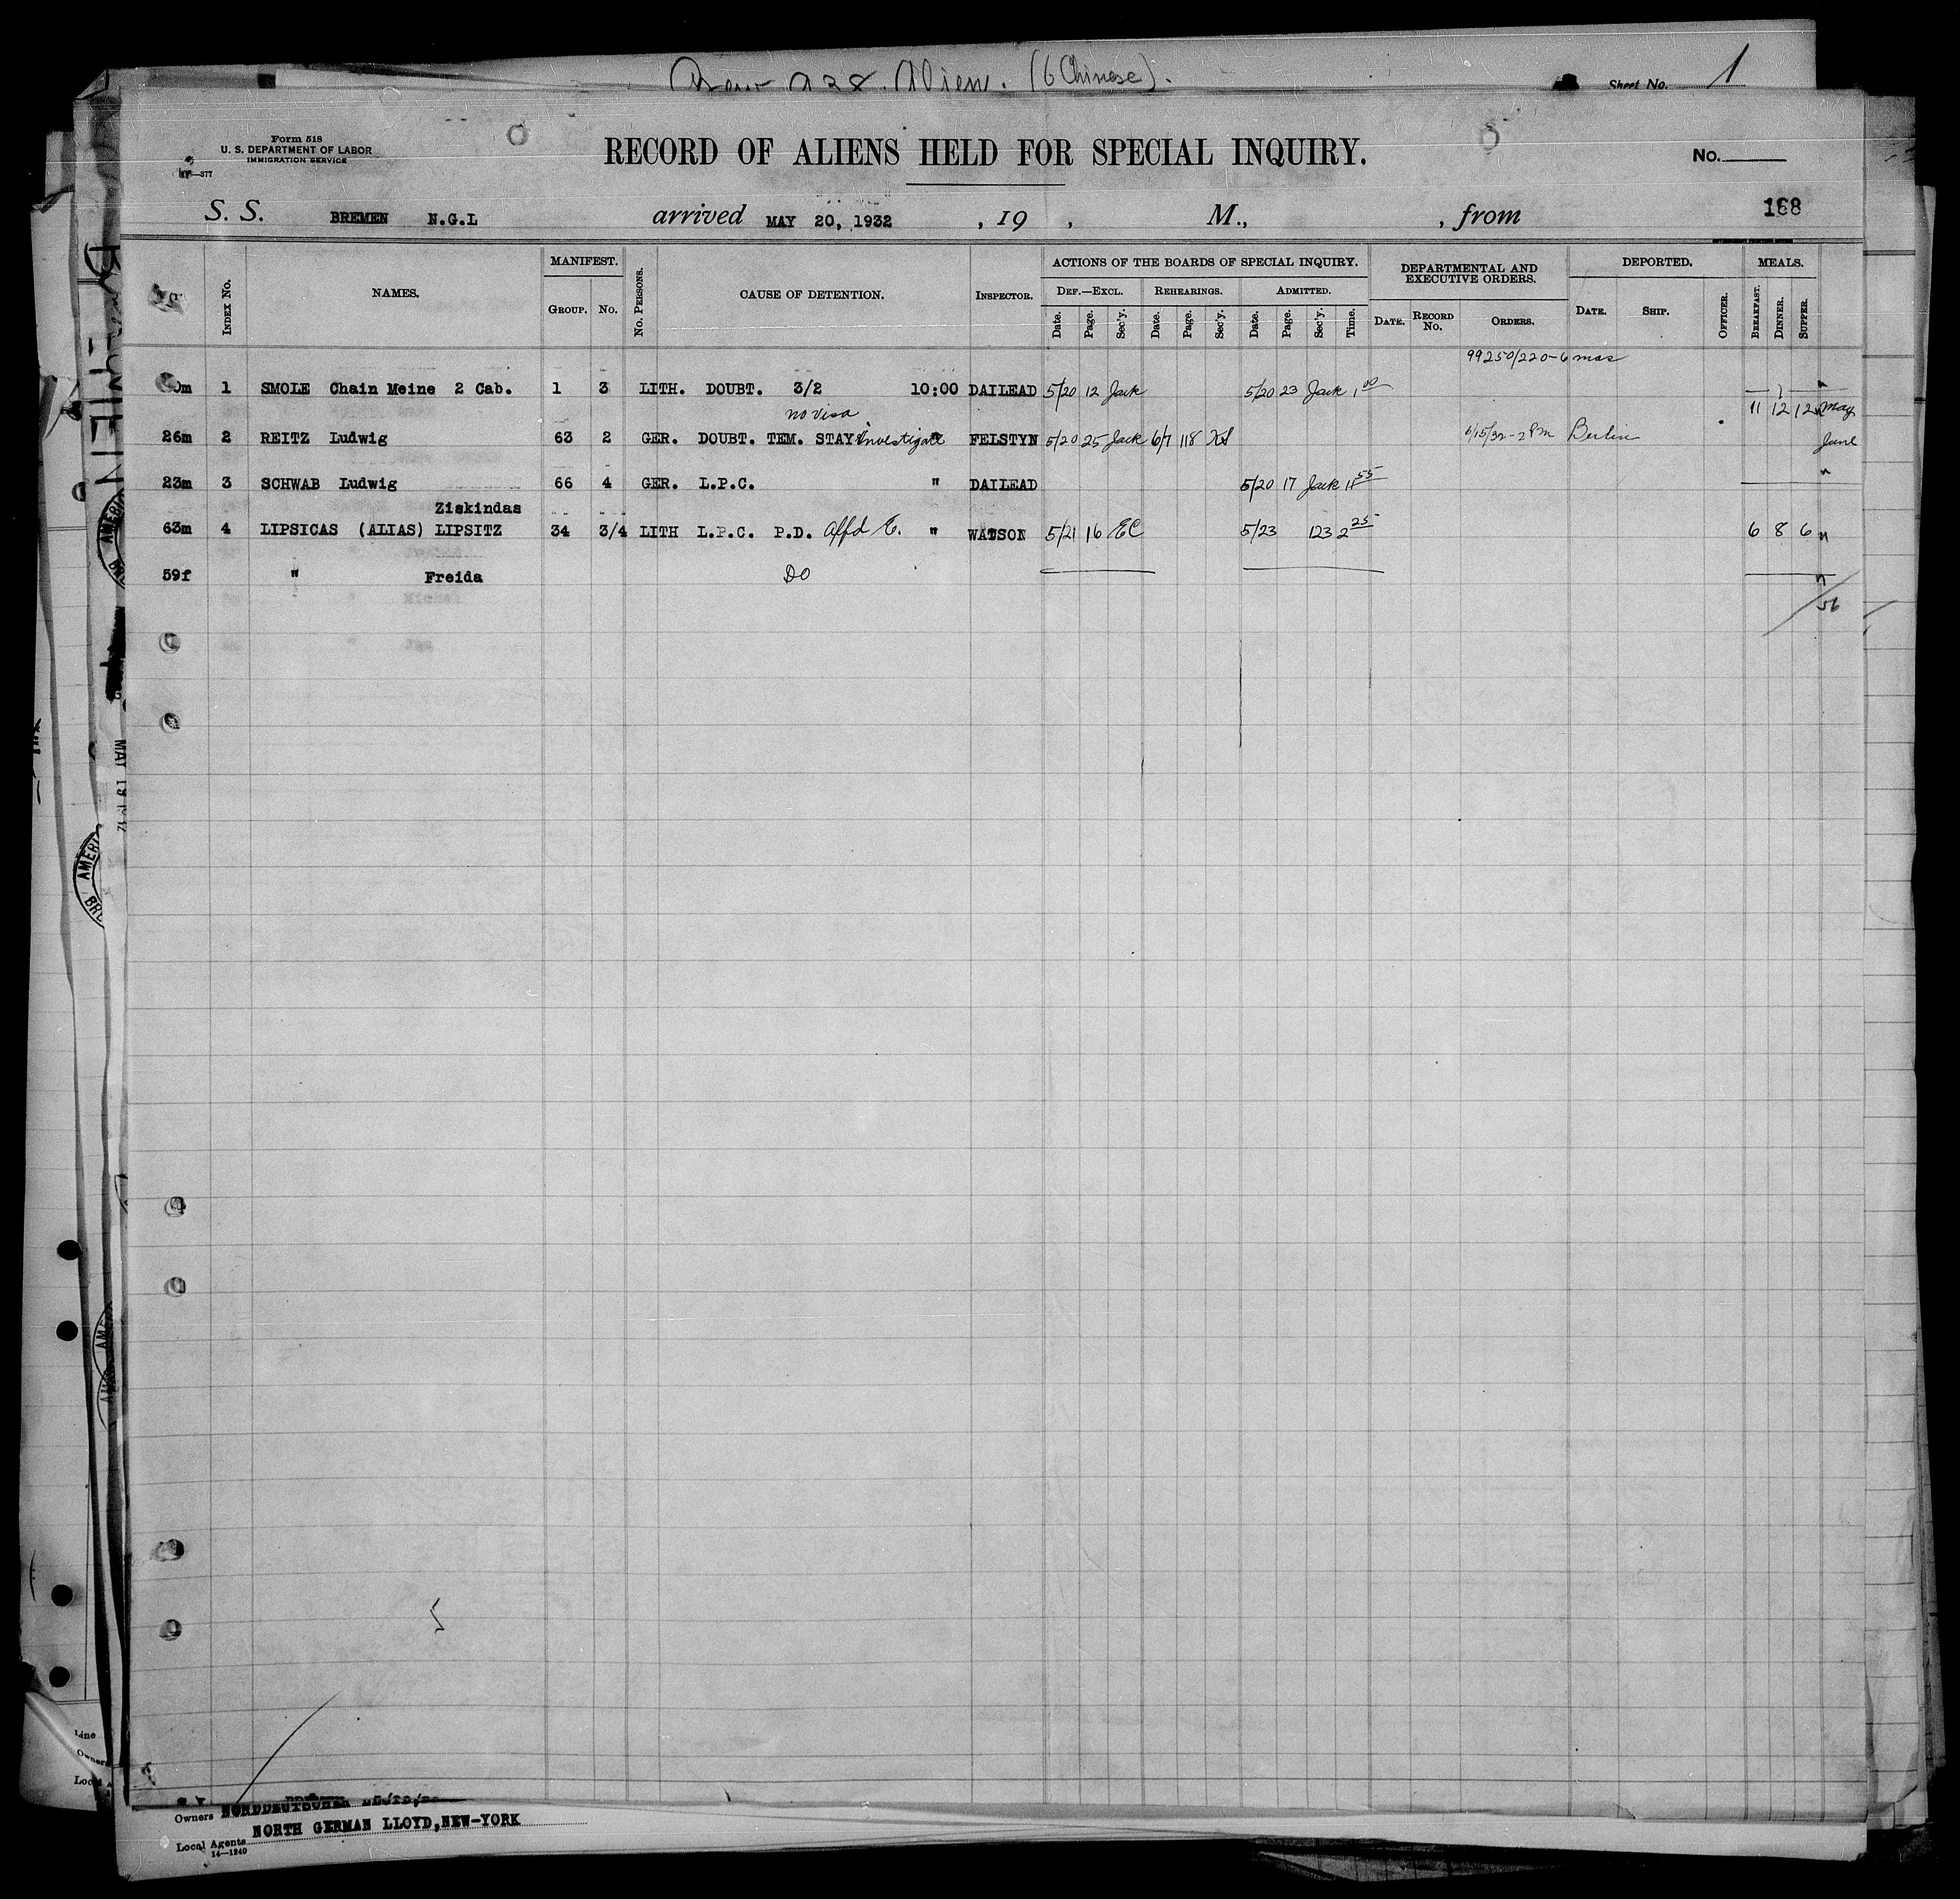 (6 Chinese).
Sheet No. 1
Form 518
U. S. DEPARTMENT OF LABOR
IMMIGRATION SERVICE
RECORD OF ALIENS HELD FOR SPECIAL INQUIRY.
No.
S. S. BREMEN N.G.L arrived MAY 20, 1932 , 19 , M., , from 168
INDEX No. NAMES. MANIFEST. GROUP. No. No. PERSONS. CAUSE OF DETENTION. INSPECTOR. ACTIONS OF THE BOARDS OF SPECIAL INQUIRY. DEPARTMENTAL AND EXECUTIVE ORDERS. DEPORTED. MEALS.
DEF.—EXCL. REHEARINGS. ADMITTED.
Date. Page. Sec'y. Date. Page. Sec'y. Date. Page. Sec'y. Time. DATE. RECORD No. ORDERS. DATE. SHIP. OFFICER. BREAKFAST. DINNER. SUPPER.
99250/220-6 mas
1 SMOLE Chain Meine 2 Cab. 1 3 LITH. DOUBT. 3/2 10:00 DAILEAD 5/20 12 Jack 5/20 23 Jack 1 00
no visa 11 12 12 May
26m 2 REITZ Ludwig 63 2 GER. DOUBT. TEM. STAY Investigate " FELSTYN 5/20 25 Jack 6/7 118 6/15/32-2 PM Berlin June
23m 3 SCHWAB Ludwig 66 4 GER. L.P.C. " DAILEAD 5/20 17 Jack 11 55 "
Ziskindas
63m 4 LIPSICAS (ALIAS) LIPSITZ 34 3/4 LITH L.P.C. P.D. Affd E. " WATSON 5/21 16 EC 5/23 123 2 25 6 8 6 "
59f " Freida DO "
56
AMERI
Owners NORDDEUTSCHER
Local Agents NORTH GERMAN LLOYD, NEW-YORK
14—1240